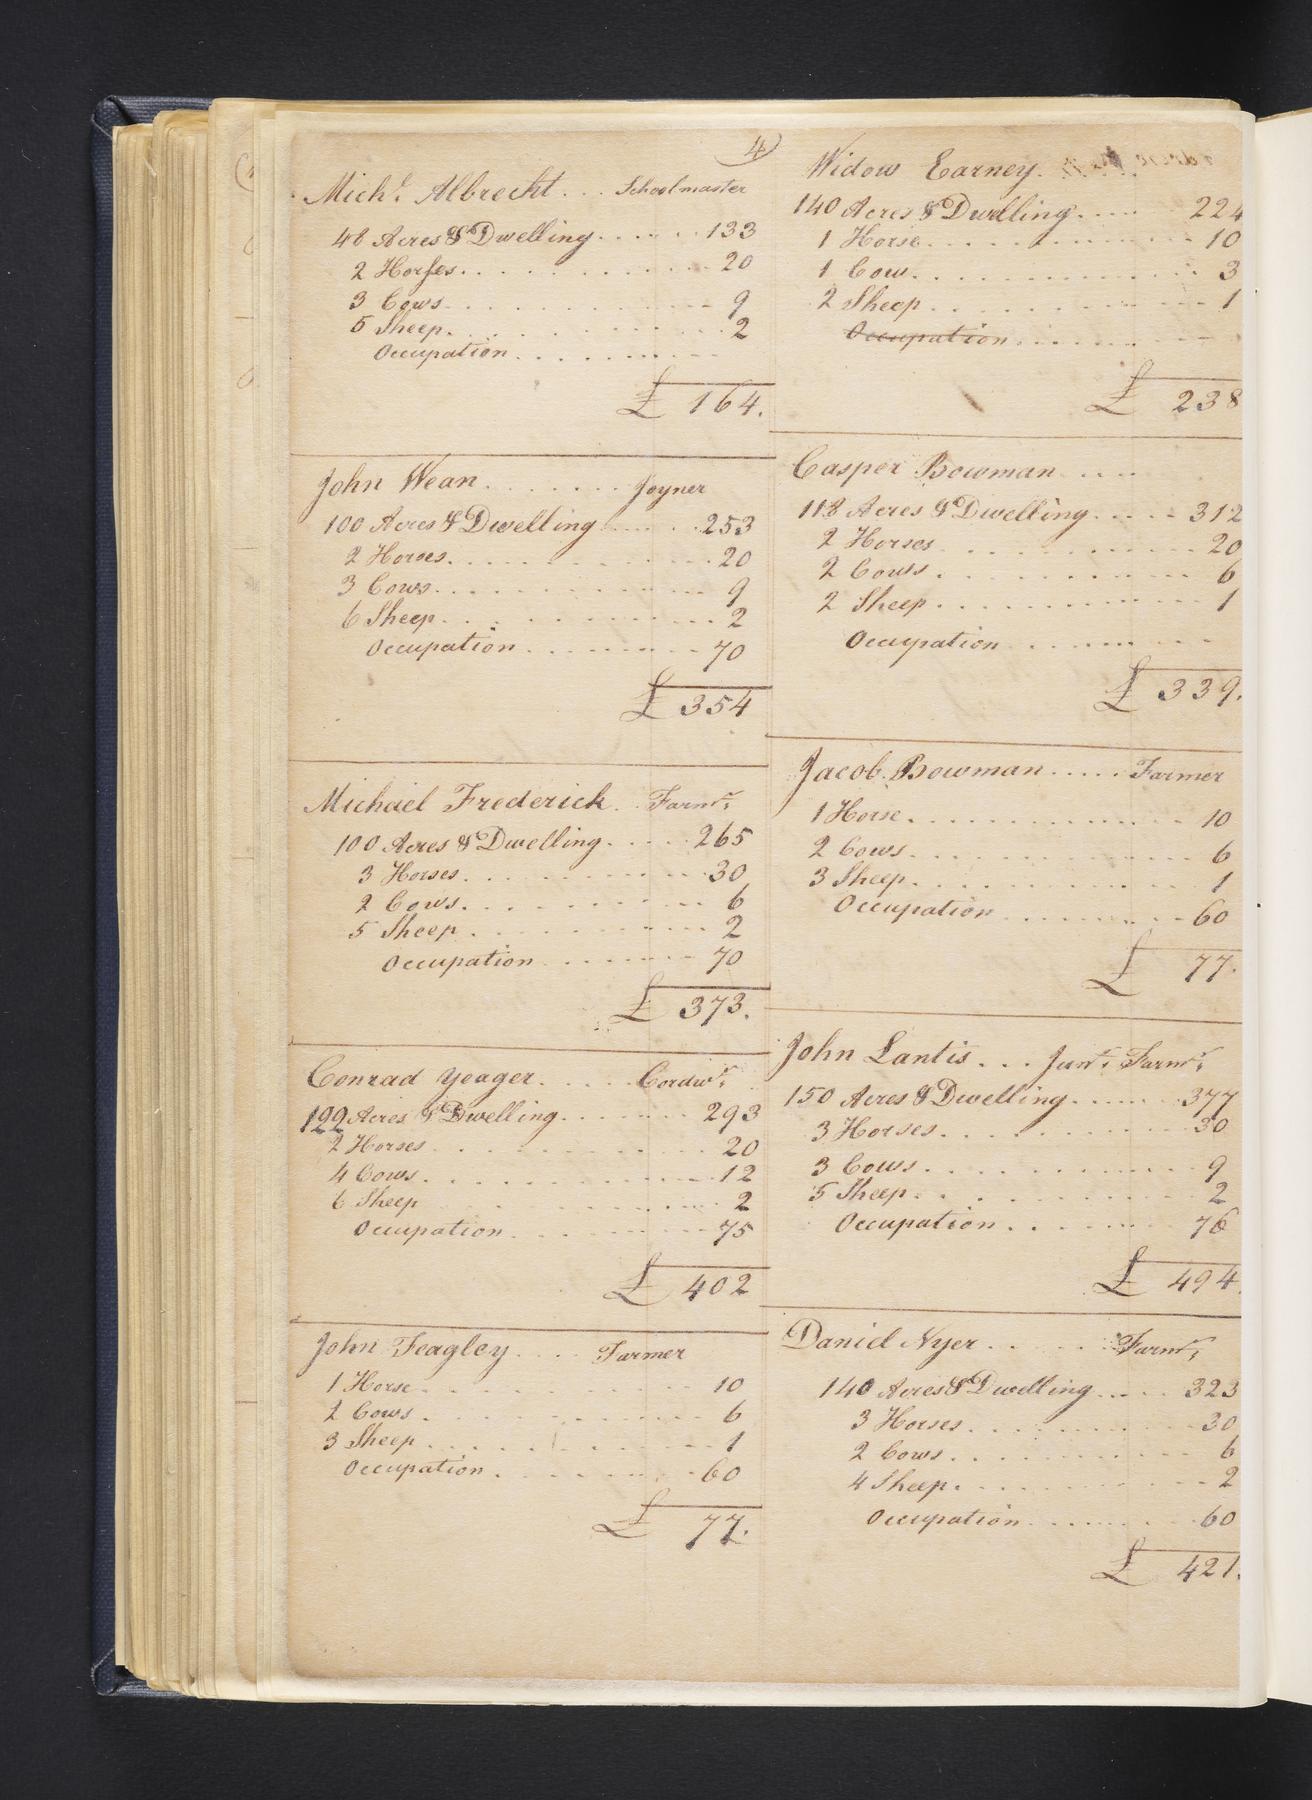 4)
Michl. Albrecht. . . Schoolmaster
48 Acres & Dwelling . . . . . . 133
2 Horses . . . . . . . . . . . 20
3 Cows . . . . . . . . . . . 9
5 Sheep . . . . . . . . . . . 2
Occupation . . . . . . . . .
£ 164.
John Wean . . . . . . . Joyner
100 Acres & Dwelling . . . . . . 253
2 Horses . . . . . . . . . . . 20
3 Cows . . . . . . . . . . . 9
6 Sheep . . . . . . . . . . . 2
Occupation . . . . . . . . . 70
£ 354
Michael Frederick . . Farmr.
100 Acres & Dwelling . . . . . 265
3 Horses . . . . . . . . . . . 30
2 Cows . . . . . . . . . . . 6
5 Sheep . . . . . . . . . . . 2
Occupation . . . . . . . . . 70
£ 373.
Conrad Yeager . . . . . Cordwr.
122 Acres & Dwelling . . . . . . 293
2 Horses . . . . . . . . . . . 20
4 Cows . . . . . . . . . . . 12
6 Sheep . . . . . . . . . . . 2
Occupation . . . . . . . . . 75
£ 402
John Feagley . . . . Farmer
1 Horse . . . . . . . . . . . 10
2 Cows . . . . . . . . . . . 6
3 Sheep . . . . . . . . . . . 1
Occupation . . . . . . . . . 60
£ 77.
Widow Earney.
140 Acres & Dwelling . . . . . 224
1 Horse . . . . . . . . . . . 10
1 Cow . . . . . . . . . . . 3
2 Sheep . . . . . . . . . . . 1
Occupation . . . . . . . . .
£ 238
Casper Bowman . . . .
118 Acres & Dwelling . . . . . 312
2 Horses . . . . . . . . . . . 20
2 Cows . . . . . . . . . . . 6
2 Sheep . . . . . . . . . . . 1
Occupation . . . . . . . . .
£ 339.
Jacob Bowman . . . . . Farmer
1 Horse . . . . . . . . . . . 10
2 Cows . . . . . . . . . . . 6
3 Sheep . . . . . . . . . . . 1
Occupation . . . . . . . . . 60
£ 77.
John Lantis . . . Junr. Farmr.
150 Acres & Dwelling . . . . . 377
3 Horses . . . . . . . . . . . 30
3 Cows . . . . . . . . . . . 9
5 Sheep . . . . . . . . . . . 2
Occupation . . . . . . . . . 76
£ 494.
Daniel Nyer . . . . . Farmr.
140 Acres & Dwelling . . . . . 323
3 Horses . . . . . . . . . . . 30
2 Cows . . . . . . . . . . . 6
4 Sheep . . . . . . . . . . . 2
Occupation . . . . . . . . . 60
£ 421.